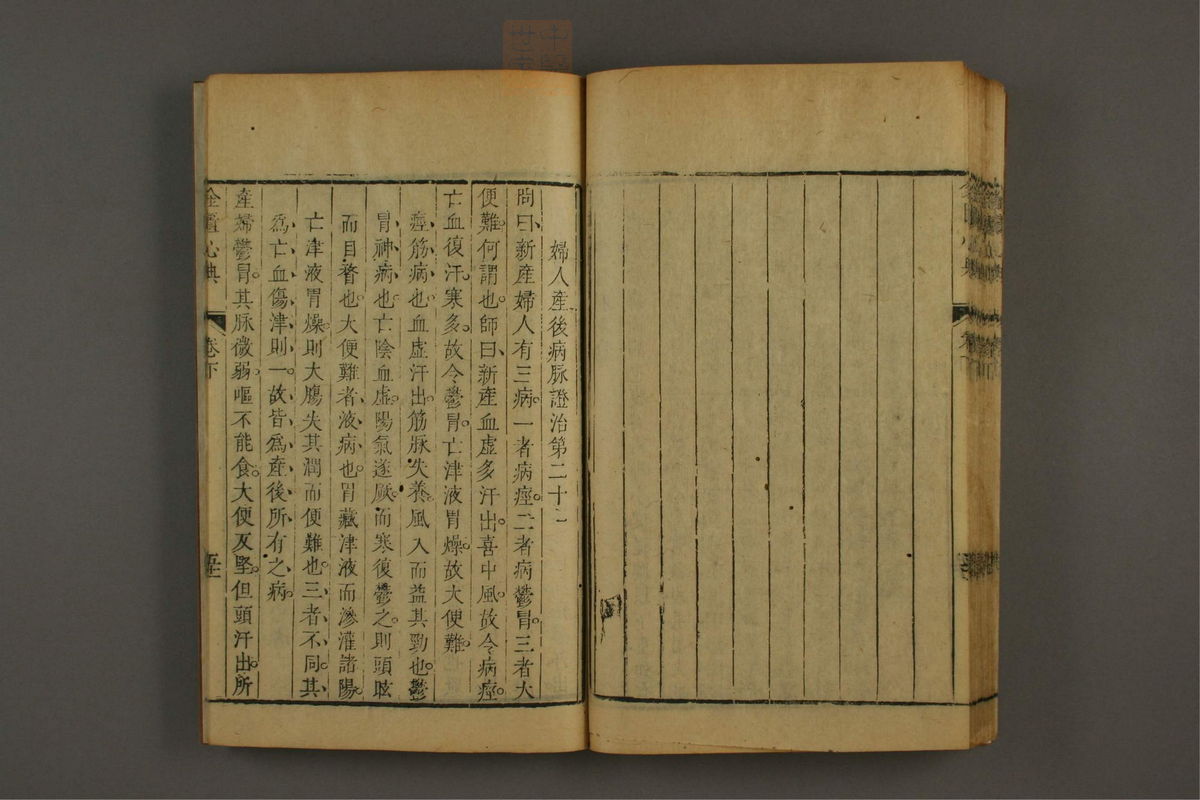 婦人産後病脉證治第二十一
問曰新産婦人有三病一者病痙二者病鬱冒三者大
便難何謂也師曰新産血虛多汗出喜中風故令病痙
亡血復汗寒多故令鬱冒亡津液胃燥故大便難
痙筋病也血虛汗出筋脉失養風入而益其勁也鬱
冒神病也亡陰血虛陽氣遂厥而寒復鬱之則頭眩
而目瞀也大便難者液病也胃藏津液而滲灌諸陽
亡津液胃燥則大腸失其潤而便難也三者不同其
爲亡血傷津則一故皆爲産後所有之病
産婦鬱冒其脉微弱嘔不能食大便反堅但頭汗出所
金匱心典 卷下